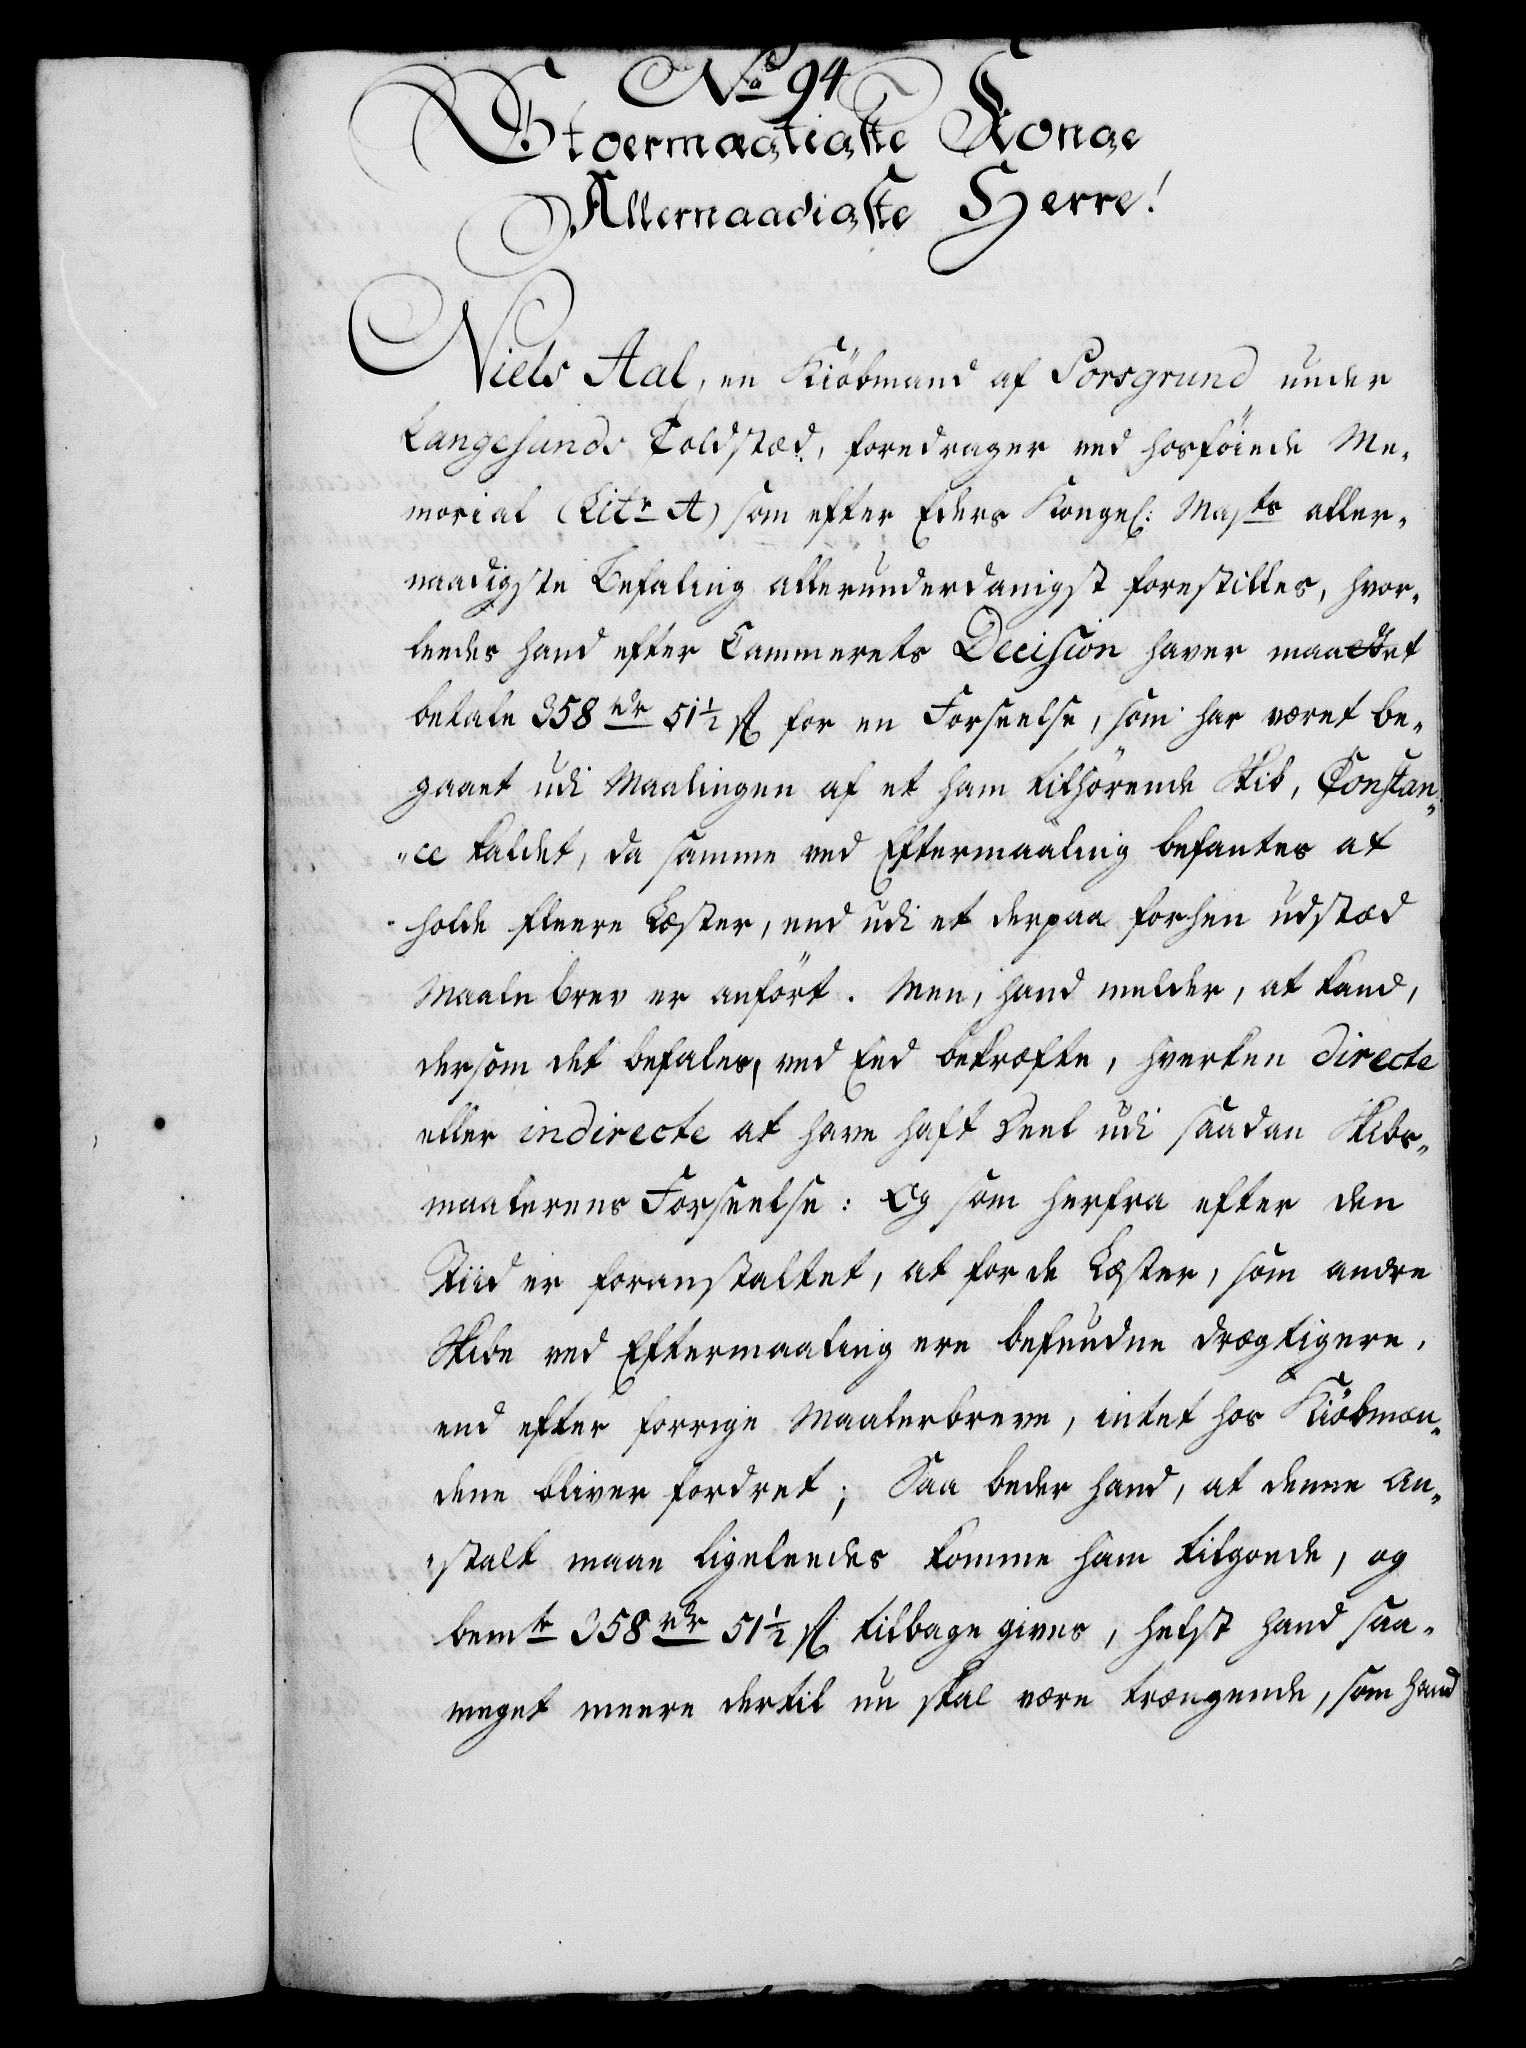 No 94
Stoermægtigste Konge
Allernaadigste Herre!
Niels Aal, en Kiöbmand af Porsgrund under
Langesunds Toldstæd, foredrager ved hosföiede Me-
morial (Litr A) som efter Eders Kongel: Mayts aller-
naadigste Befaling allerunderdanigst forestilles, hvor-
leedes hand efter Cammerets Decision haver maattet
betale 358 rdr 51½ s for en Forseelse, som har været be-
gaaet udi Maalingen af et ham tilhörende Skib, Constan-
ce kaldet, da samme ved Eftermaaling befantes at
holde fleere Læster, end udi et derpaa forhen udstæd
Maale brev er anfört. Men, hand melder, at kand,
dersom det befales, ved Eed bekræfte, hverken directe
eller indirecte at have haft Deel udi saadan Skibs-
maalerens Forseelse: Og som herfra efter den
Tiid er foranstaltet, at for de Læster, som andre
Skibe ved Eftermaaling ere befundne drægtigere,
end efter forrige Maalerbreve, intet hos Kiöbmæn-
dene bliver fordret; Saa beder hand, at denne An-
stalt maae ligeleedes komme ham tilgoede, og
bemte 358 rdr 51½ s tilbage gives, helst hand saa-
meget meere dertil nu skal være trængende, som hand